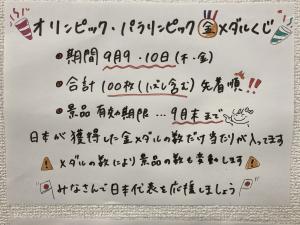 オリンピック・パラリンピック金メダルくじ
・期間 9月9・10日(木・金)
・合計 100枚(にじ含む)先着順!!
・景品 有効期限…9月末まで
日本が獲得した金メダルの数だけ当たりが入ってます
メダルの数により景品の数も変動します
みなさんで日本代表を応援しましょう